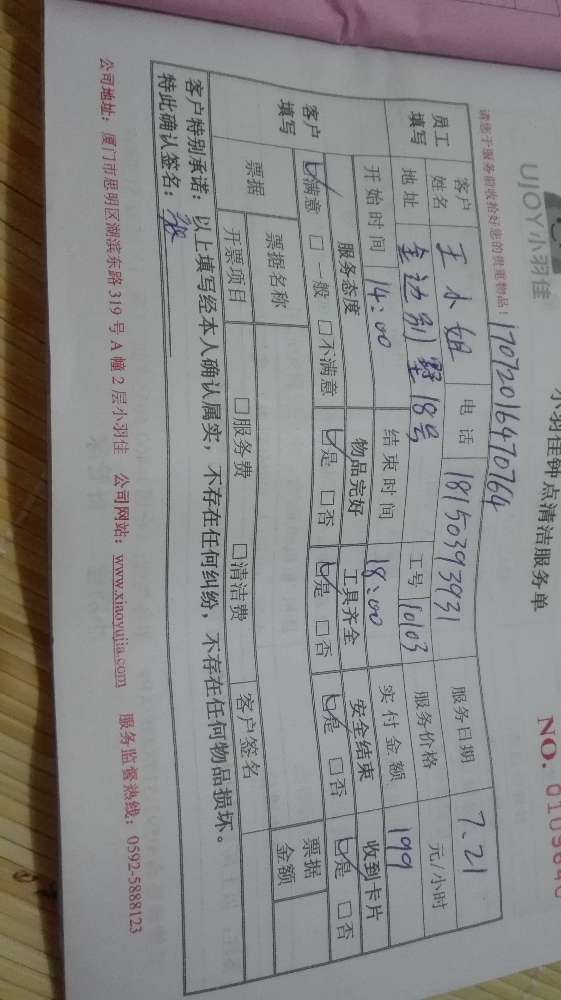 UJOY小羽佳
小羽佳钟点清洁服务单
NO.
请您于服务前收拾好您的贵重物品！
17072016470764
员工填写 客户姓名 王小姐 电话 18150393931 服务日期 7.21
地址 金边别墅18号 工号 10103 服务价格 元/小时
开始时间 14:00 结束时间 18:00 实付金额 199
客户填写 服务态度 物品完好 工具齐全 安全结束 收到卡片
☑满意 □一般 □不满意 ☑是 □否 ☑是 □否 ☑是 □否 ☑是 □否
票据 票据名称 客户签名 票据金额
开票项目 □服务费 □清洁费
客户特别承诺：以上填写经本人确认属实，不存在任何纠纷，不存在任何物品损坏。
特此确认签名：
公司地址：厦门市思明区湖滨东路319号A幢2层小羽佳 公司网站：www.xiaoyujia.com 服务监督热线：0592-5888123